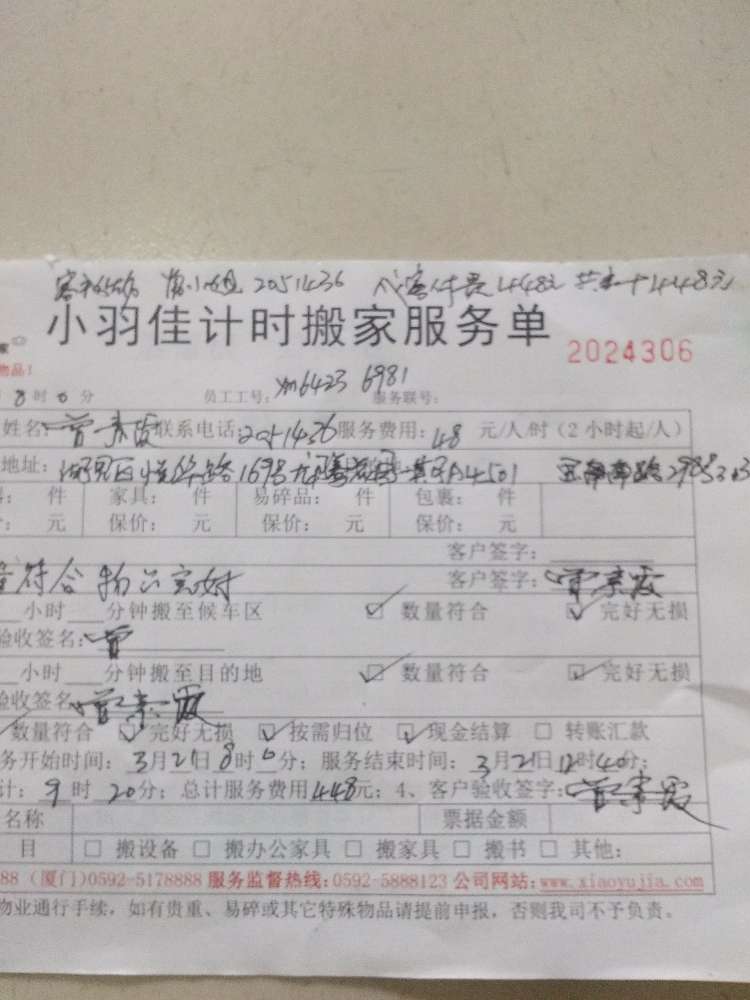 2051436 448元
小羽佳计时搬家服务单
家 2024306
物品!
8时0分 员工工号:xm6423 6981 服务联号:
姓名:曾素霞 联系电话:2051436 服务费用:48 元/人/时(2小时起/人)
地址: 1698号 4501
件 家具: 件 易碎品: 件 包裹: 件
: 元 保价: 元 保价: 元 保价: 元
客户签字:
符合 物品完好 客户签字:曾素霞
小时 分钟搬至候车区 ☑ 数量符合 ☑ 完好无损
验收签名:曾
小时 分钟搬至目的地 ☑ 数量符合 ☑ 完好无损
验收签名 曾素霞
数量符合 ☑ 完好无损 ☑ 按需归位 ☑ 现金结算 □ 转账汇款
务开始时间:3月21日8时0分;服务结束时间:3月21日12时40分;
计:9时20分;总计服务费用448元;4、客户验收签字:曾素霞
名称 票据金额
目 □ 搬设备 □ 搬办公家具 □ 搬家具 □ 搬书 □ 其他:
88 (厦门)0592-5178888 服务监督热线:0592-5888123 公司网站:www.xiaoyujia.com
物业通行手续,如有贵重、易碎或其它特殊物品请提前申报,否则我司不予负责。